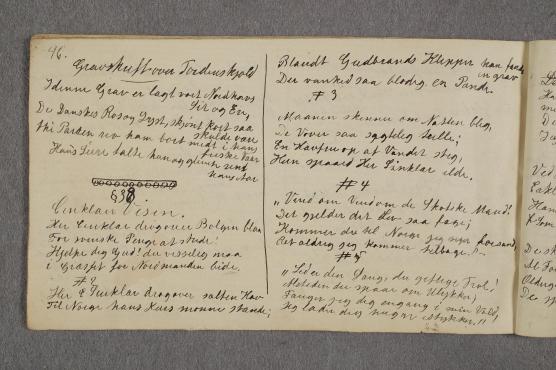 46.
Gravskrift over Tordenskjold
I denne Grav er lagt vort Nordhavs
Sir og Ære,
De Danskes Ros og Lyst, skjönt kort saa
skulde være
thi Parken rev ham bort midt i hans
friske Aar
Hans Seier talte han og glemte sine
hans Aar
§38
Sinklar Visen.
Her Sinklar drog over Bölgen blaa
For svenske Penge at stride
Hjelpe dig Gud! du visselig maa
i Græsset for Nordmanden bide.
# 2
Her Sinklar drog over salten Hav
Til Norge hans Kurs monne stande;
Blandt Gudbrands Klipper han fandt
sin grav
Der vanked saa blodig en Pande
# 3
Maanen skinnu om Natten bleg,
De Vover saa sagtelig trille;
En Havfru op af Vandet steg,
Hun spaaed Her Sinklar ilde.
# 4
"Vend om Vend om du Skotske Mand!
Det gjelder dit Liv saa fage;
Kommer du til Norge jeg siger for sand,
Ret aldrig jeg kommer tilbage."
# 5
"Leder din Sang, du giftige Trol!
Altiden du spaar om Ulykker,
Fanger jeg dig engang i min Vold,
Jeg lader dig hugge i stykker."